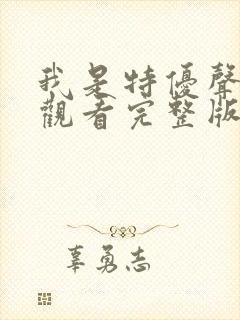 我是特優聲
觀看完整版
辜勇志